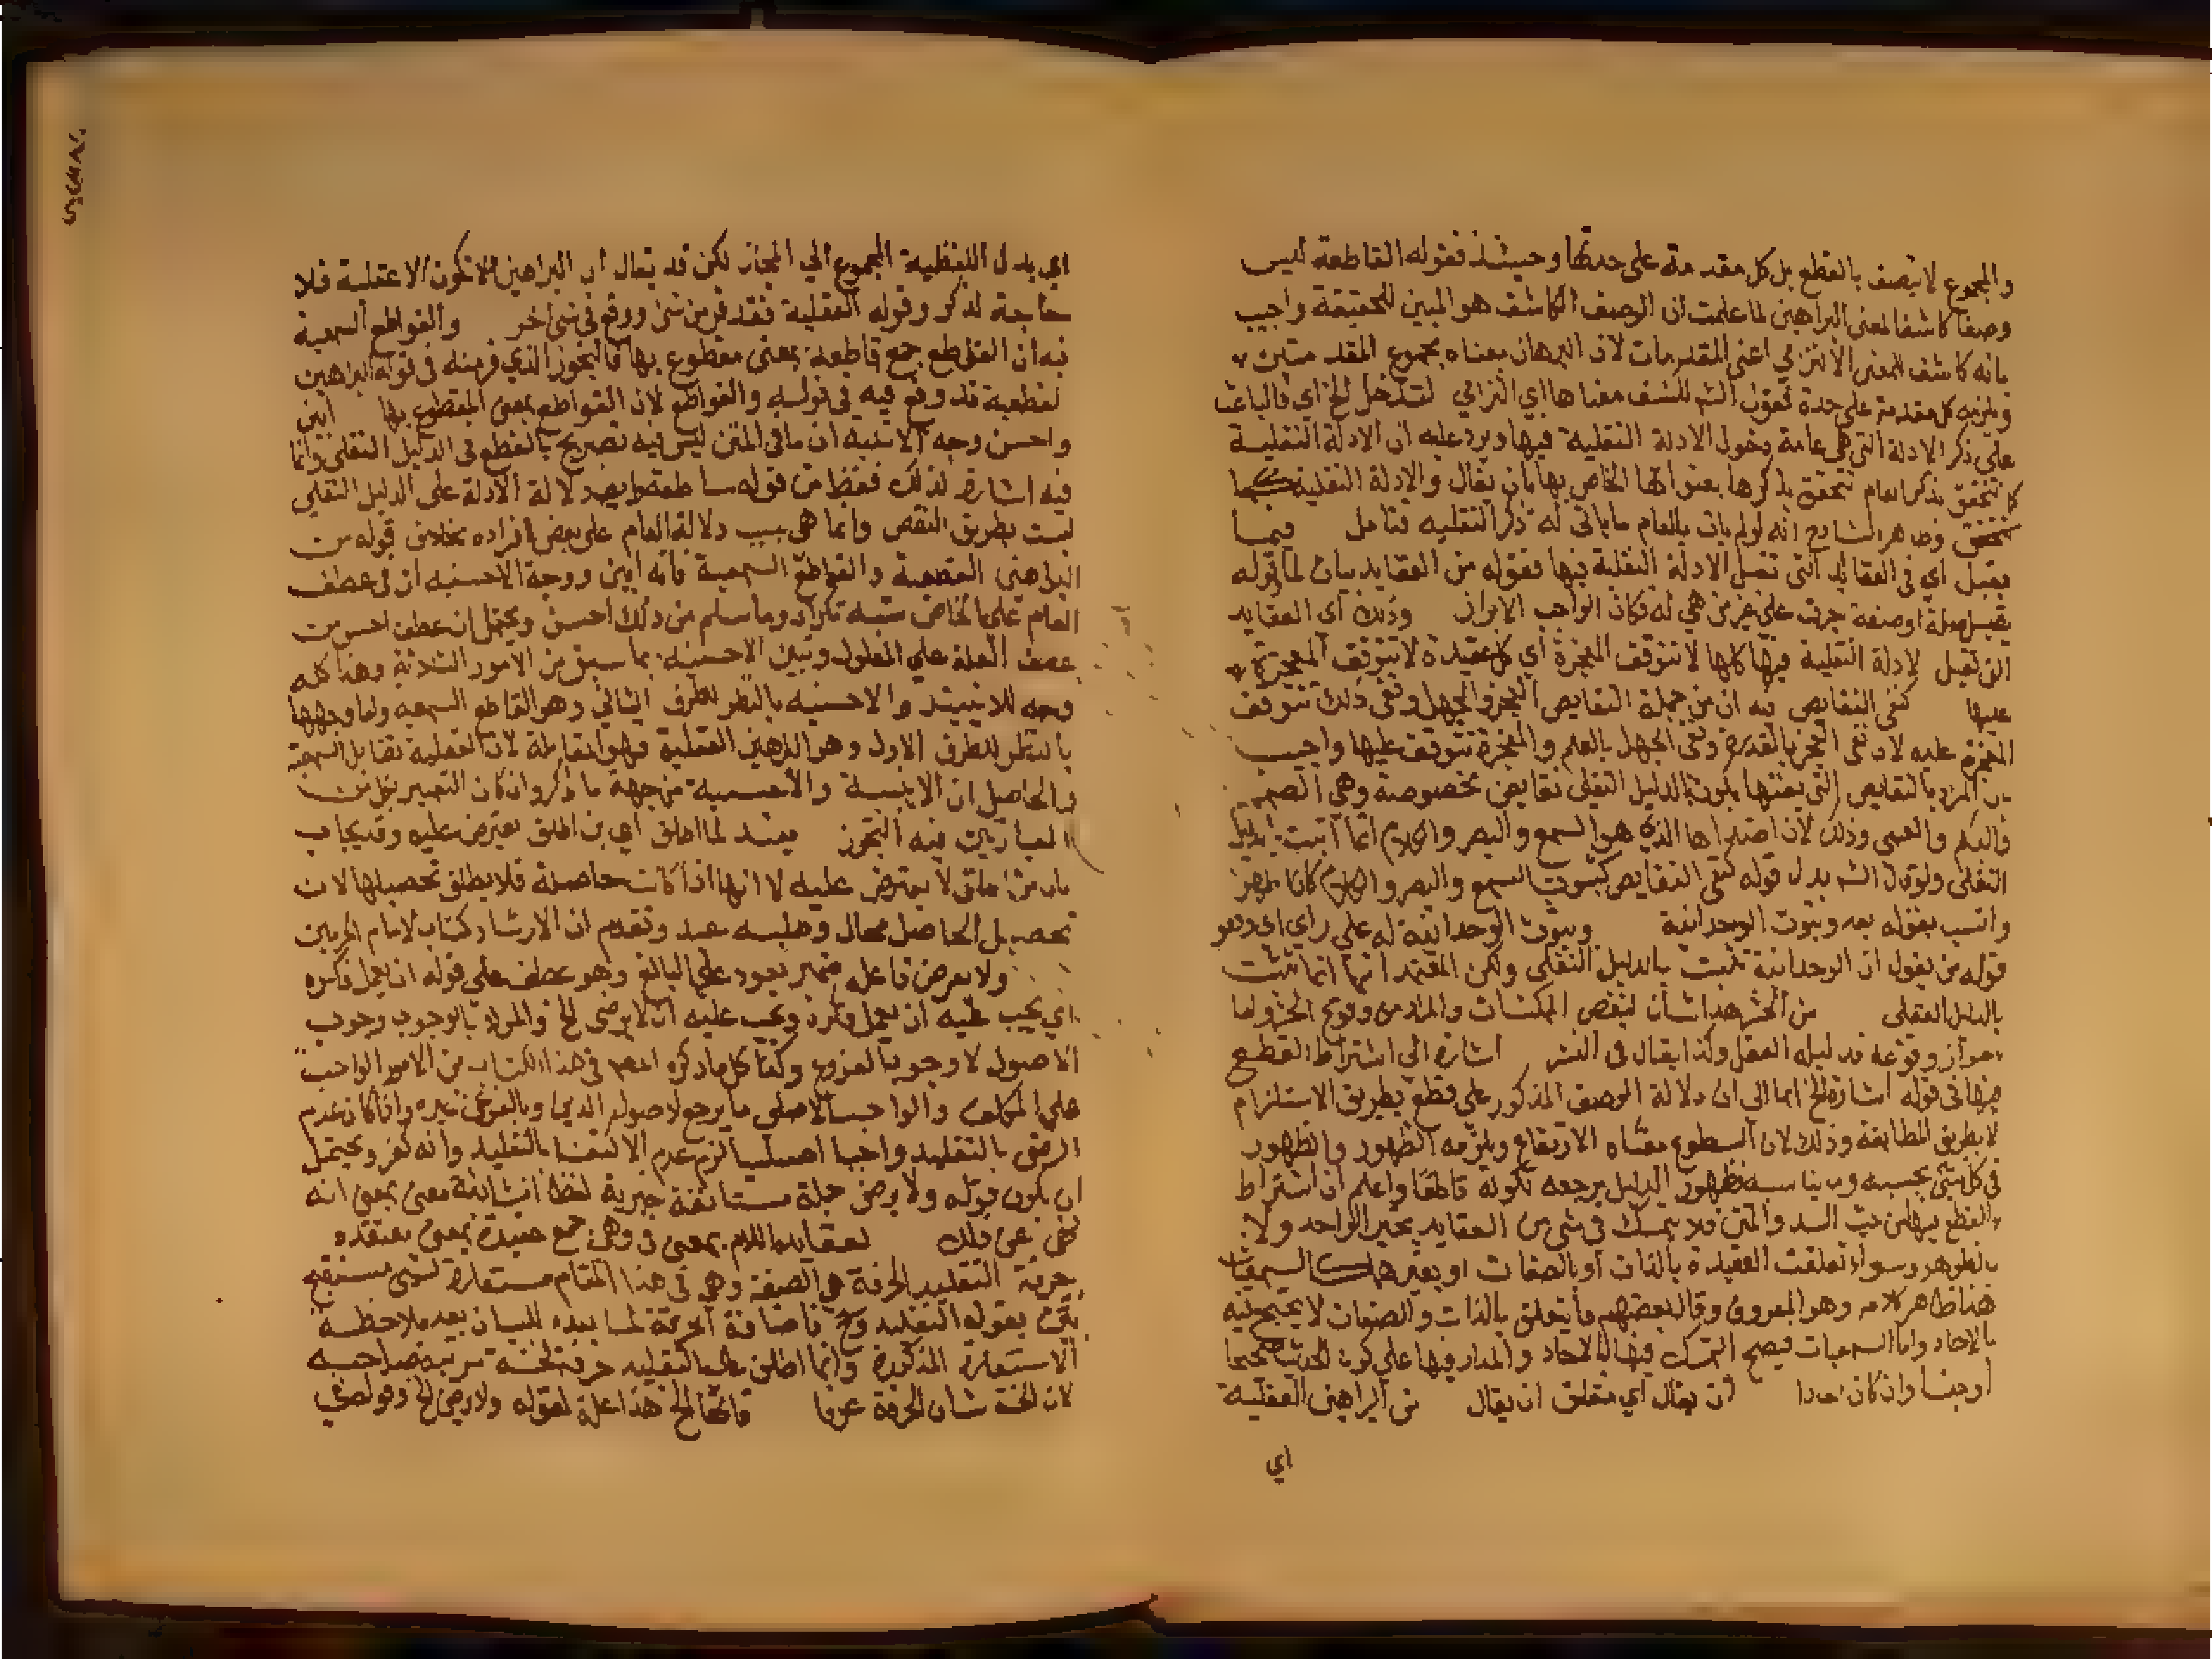 والمجموع لا يتصف بالقطع بل كل مقدمة على حدتها وحينئذ فقوله القاطعة ليس
وصفا كاشفا لمعنى البراهين لما علمت ان الوصف الكاشف هو المبين للحقيقة واجيب
بانه كاشف للمعنى الالتزامي اعني المقدمات لان البرهان معناه مجموع المقدمتين
ويلزمه كل مقدمة على حدة فقول الشم للشف معناها اي التزامي لتدخل الخ اي فالباعث
على ذكر الادلة التي هي عامة دخول الادلة النقلية فيها ويرد عليه ان الادلة النقلية
كما تتحقق بذكر العام تتحقق بذكرها بعنوانها الخاص بها بان يقال والادلة النقلية
الشارح انه لو لم يات بالعام ما ياتي له ذكر النقليه فتامل فيما
يقبل اي في العقائد التي تقبل الادلة النقلية فيها فقوله من العقايد بيان لما قوله
تقبل صلة او صفة جرت على غير من هي له فكان الواجب الابراز وذلك اي العقايد
التي تقبل الادلة النقلية فيها كلها لا تتوقف المعجزة اي كل عقيدة لا تتوقف المعجزة
عليها كنفي النقايص فيه ان من جملة النقايص العجز والجهل ونفي ذلك تتوقف
المعجزة عليه لان نفي العجز بالقدرة ونفي الجهل بالعلم والمعجزة تتوقف عليها واجيب
بان المراد بالنقايص التي يكون نفيها بالدليل النقلي نقايص مخصوصة وهي الصمم
والبكم والعمى وذلك لان اضدادها الذي هو السمع والبصر والكلام انما اثبت بالدليل
النقلي ولو قال الشم بدل قوله كنفي النقايص كثبوت السمع والبصر والكلام كان اظهر
وانسب بقوله بعد وثبوت الوحدانية وثبوت الوحدانية له على راي اي وهو
قوله من يقول ان الوحدانية تثبت بالدليل النقلي ولكن المعتمد انها انما تثبت
بالدليل العقلي من الحشر هذا شان لبعض الممكنات والمراد من وقوع الحشر واما
جواز وقوعه فدليله العقل وكذا يقال في النشر اشارة الى اشتراط القطع
فيها في قوله اشارة الخ ايما الى ان دلالة الوصف المذكور على قطع بطريق الاستلزام
لا بطريق المطابقة وذلك لان السطوع معناه الارتفاع ويلزمه الظهور والظهور
في كل شي بحسبه وما يناسبه فظهور الدليل مرجعه لكونه قاطعا واعلم ان اشتراط
القطع فيها من حيث السند والمتن فلا يتمسك في شي من العقايد بخبر الواحد ولا
بالظواهر وسواء تعلقت العقيدة بالذات او بالصفات او بغيرها السمعيات
هذا ظاهر كلامه وهو المعروف وقال بعضهم ما يتعلق بالذات والصفات لا يحتج فيه
بالاحاد واما السمعيات فيصح التمسك فيها بالاحاد والمدار فيها على كون الحديث صحيحا
او حسنا وان كان احادا ان يقال اي متعلق ان يقال من البراهين العقلية
اي
اي بدل اللفظية المجموع الي المجاز لكن قد يقال ان البراهين لا تكون الا عقلية فلا
حاجة لذكر وقوله العقلية فقد فر من شي ووقع في شي اخر والقواطع السمعية
فيه ان القواطع جمع قاطعة بمعنى مقطوع بها فالتجوز الذي فر منه في قوله البراهين
القطعية قد وقع فيه في قوله والقواطع لان القواطع بمعنى المقطوع بها ابين
واحسن وجه الابينية ان ما في المتن ليس فيه تصريح بالقطع في الدليل النقلي وانما
فيه اشارة لذلك فقط من قوله ساطعة وايضا دلالة الادلة على الدليل النقلي
ليست بطريق النص وانما هي سبب دلالة العام على بعض افراده بخلاف قوله من
البراهين القطعية والقواطع السمعية فانه ابين ووجه الاحسنيه ان في عطف
العام على الخاص شبه تكرار وما سلم من ذلك احسن ويحتمل ان عطف احسن من
عطف العلة على المعلول وتبين الاحسنيه بما سبق من الامور الثلاثة وهذا كله
وجه للابينية والاحسنيه بالنظر للطرف الثاني وهو القاطع السمعيه واما وجهها
بالنظر للطرف الاول وهو البراهين العقلية فهو المقابلة لان العقلية تقابل السمعية
والحاصل ان الابينية والاحسنية من جهة ما ذكر وان كان التعبير بكل من
العبارتين فيه التجوز لما اطلق اي بن اطلق يعترض عليه وقد يجاب
بان من اطلق لا يعترض عليه لا انها اذا كانت حاصلة فلا يطلق تحصيلها لان
تحصيل الحاصل محال وطلبه وتقدم ان الارشاد كتاب لامام الحرمين
ولا يعرض فاعله ضمير يعود على البالغ وهو عطف على قوله ان يعمل فكره
اي يجب عليه ان يعمل فكره ويجب عليه ان لا يرضى الخ والمراد بالوجوب وجوب
الاصول لا وجوب الفروع وكذا كل ما ذكره المصم في هذا الكتاب من الامور الواجبة
على المكلف والواجب الاصلي ما يرجع لاصول الدين وبالفرعي غيره واذا كان عدم
الرضى بالتقليد واجبا اصليا لزم عدم الاكتفا بالتقليد وانه كفر ويحتمل
ان يكون قوله ولا يرضى جملة مستانفة خبرية لفظا انشائية معنى بمعنى انه
نهي عن ذلك لعقايده اللام بمعنى في وهي جمع عقيدة بمعنى معتقده
حرفة التقليد الحرفة هي الصنعة وهي في هذا المقام مستعارة لشي مستقبح
بقوله التقليد وح فاضافة الحرفة لما بعده للبيان بعد ملاحظة
الاستعارة المذكورة وانما اطلق على التقليد حرفة لخسة مرتبة صاحبه
لان الخسة شان الحرفة عرفا فانها الخ هذا علة لقوله ولا يرضى الخ